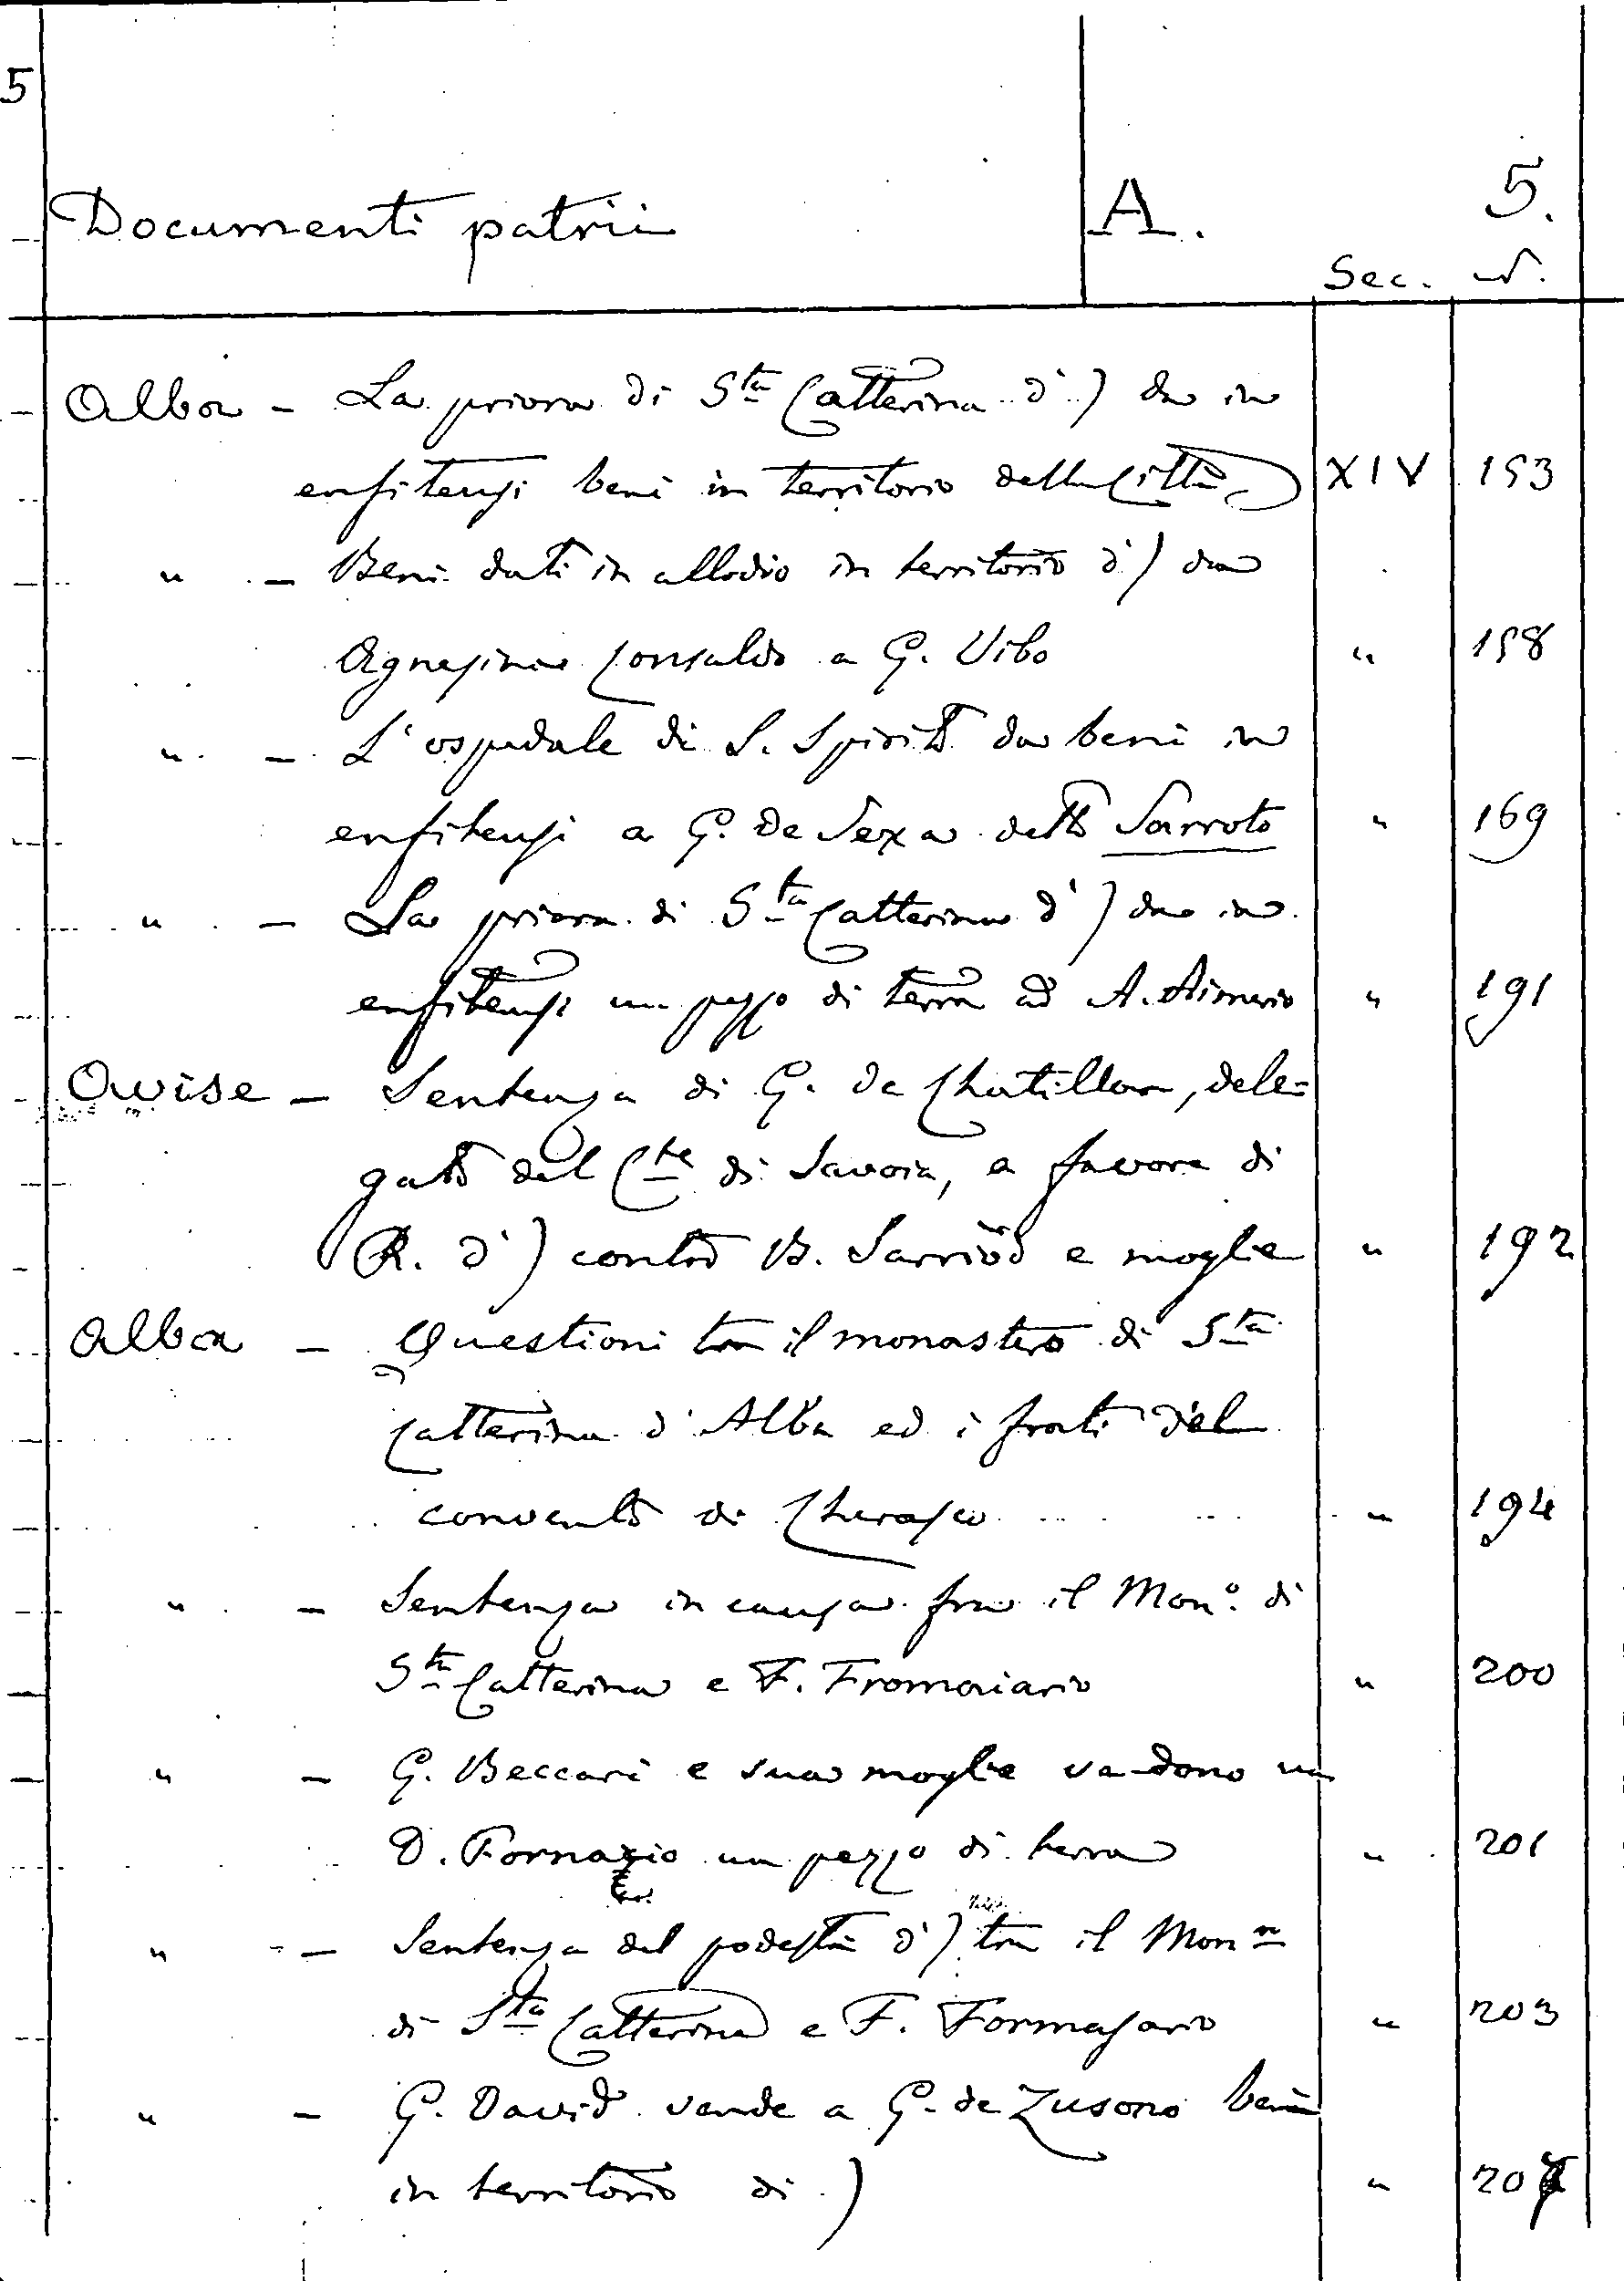 5
Documenti patrii A. 5.
Sec. N.
Alba - La priora di Sta Catterina d' ) da in
enfiteusi beni in territorio della Città XIV 153
" - Beni dati in allodio in territorio d' ) da
Agnesina Consaldo a G. Vibo " 158
" - L'ospedale di S. Spirito da beni in
enfiteusi a G. de Sexa detto Sarroto " 169
" - La priora di Sta Catterina d' ) da in
enfiteusi un pezzo di terra ad A. Aimerio " 191
Avise - Sentenza di G. de Chatillon, dele=
gato del Cte di Savoia, a favore di
R. d' ) contro B. Sarriod e moglie " 192
Alba - Questioni tra il monastero di Sta
Catterina d'Alba ed i frati del
convento di Cherasco " 194
" - Sentenza in causa fra il Mon.o di
Sta Catterina e F. Fromaiario " 200
" - G. Beccari e sua moglie vendono
D. Fornazio un pezzo di terra " 201
" - Sentenza del podestà d' ) tra il Mon
di Sta Catterina e F. Formasario " 203
" - G. David vende a G. de Zusono beni
in territorio di ) "